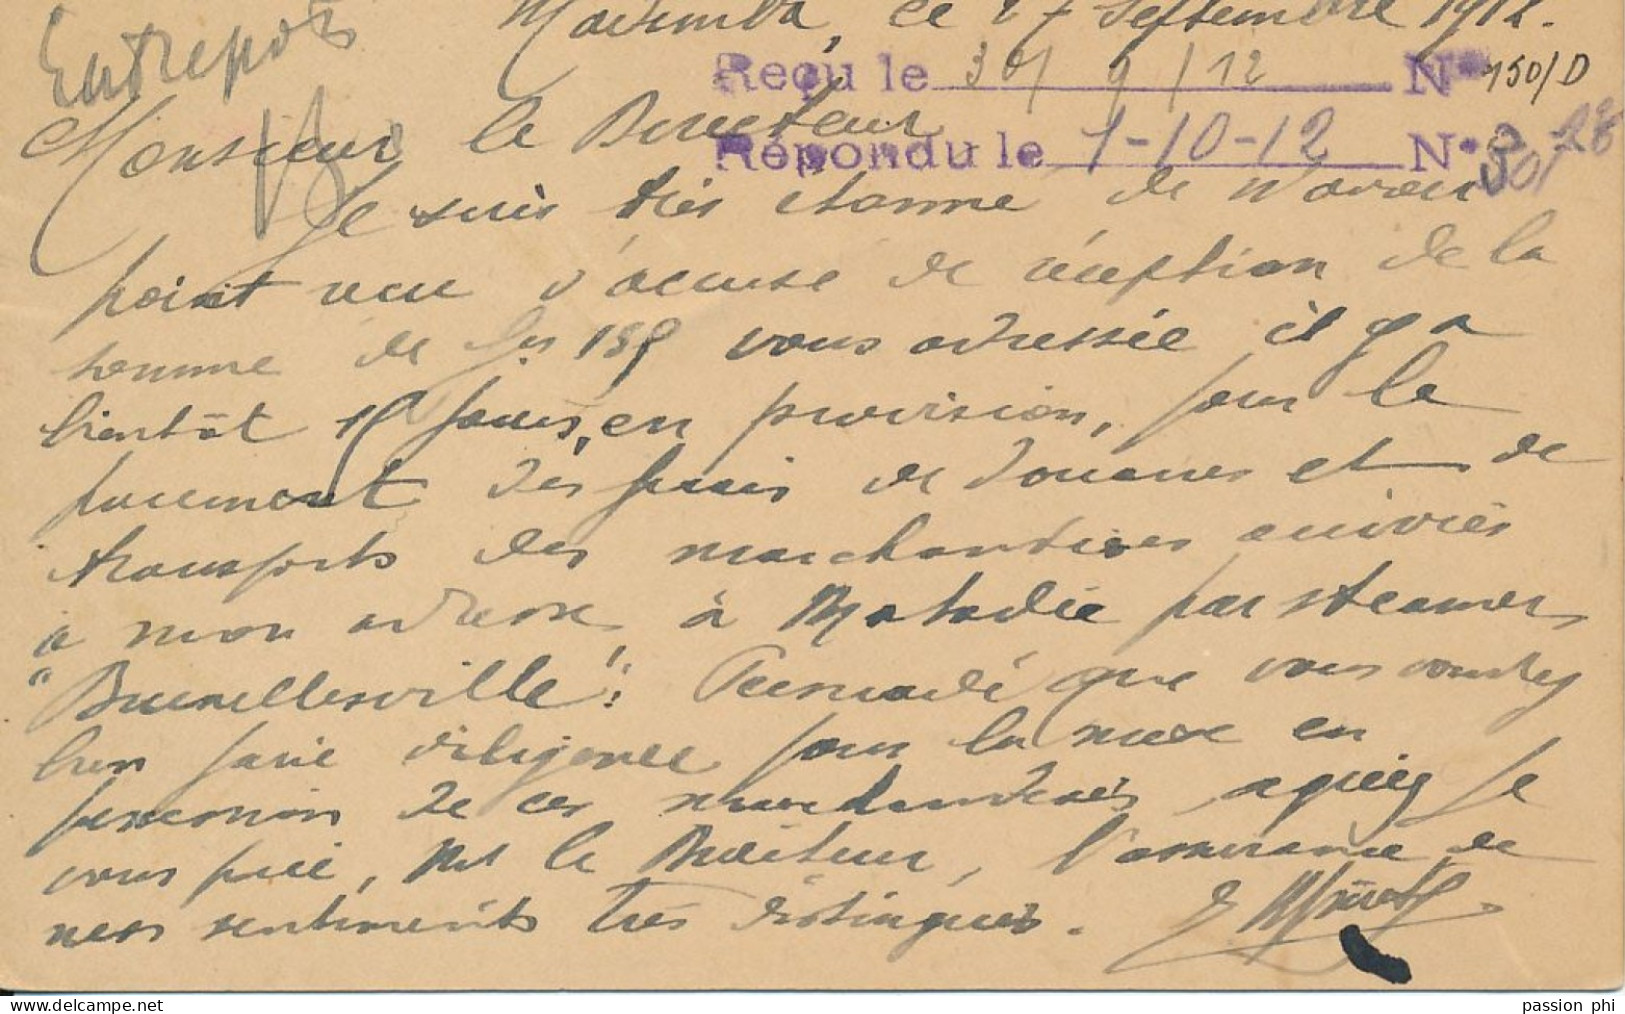 Entrepots
ce 27 Septembre 1912.
Reçu le 30/9/12 N° 150/D
Monsieur le Directeur
Répondu le 1-10-12 N°
Je suis très étonné de n'avoir
point reçu d'accusé de réception de la
somme de frs vous adressée il y a
bientôt 15 jours, en provision, pour le
paiement des frais de douanes et de
transports des marchandises arrivées
à mon adresse, à Matadi par steamer
"Bruxellesville". Persuadé que vous voudrez
bien faire diligence pour la mise en
possession de ces marchandises, agréez je
vous prie, Mr le Directeur, l'assurance de
mes sentiments très distingués.
passion phi